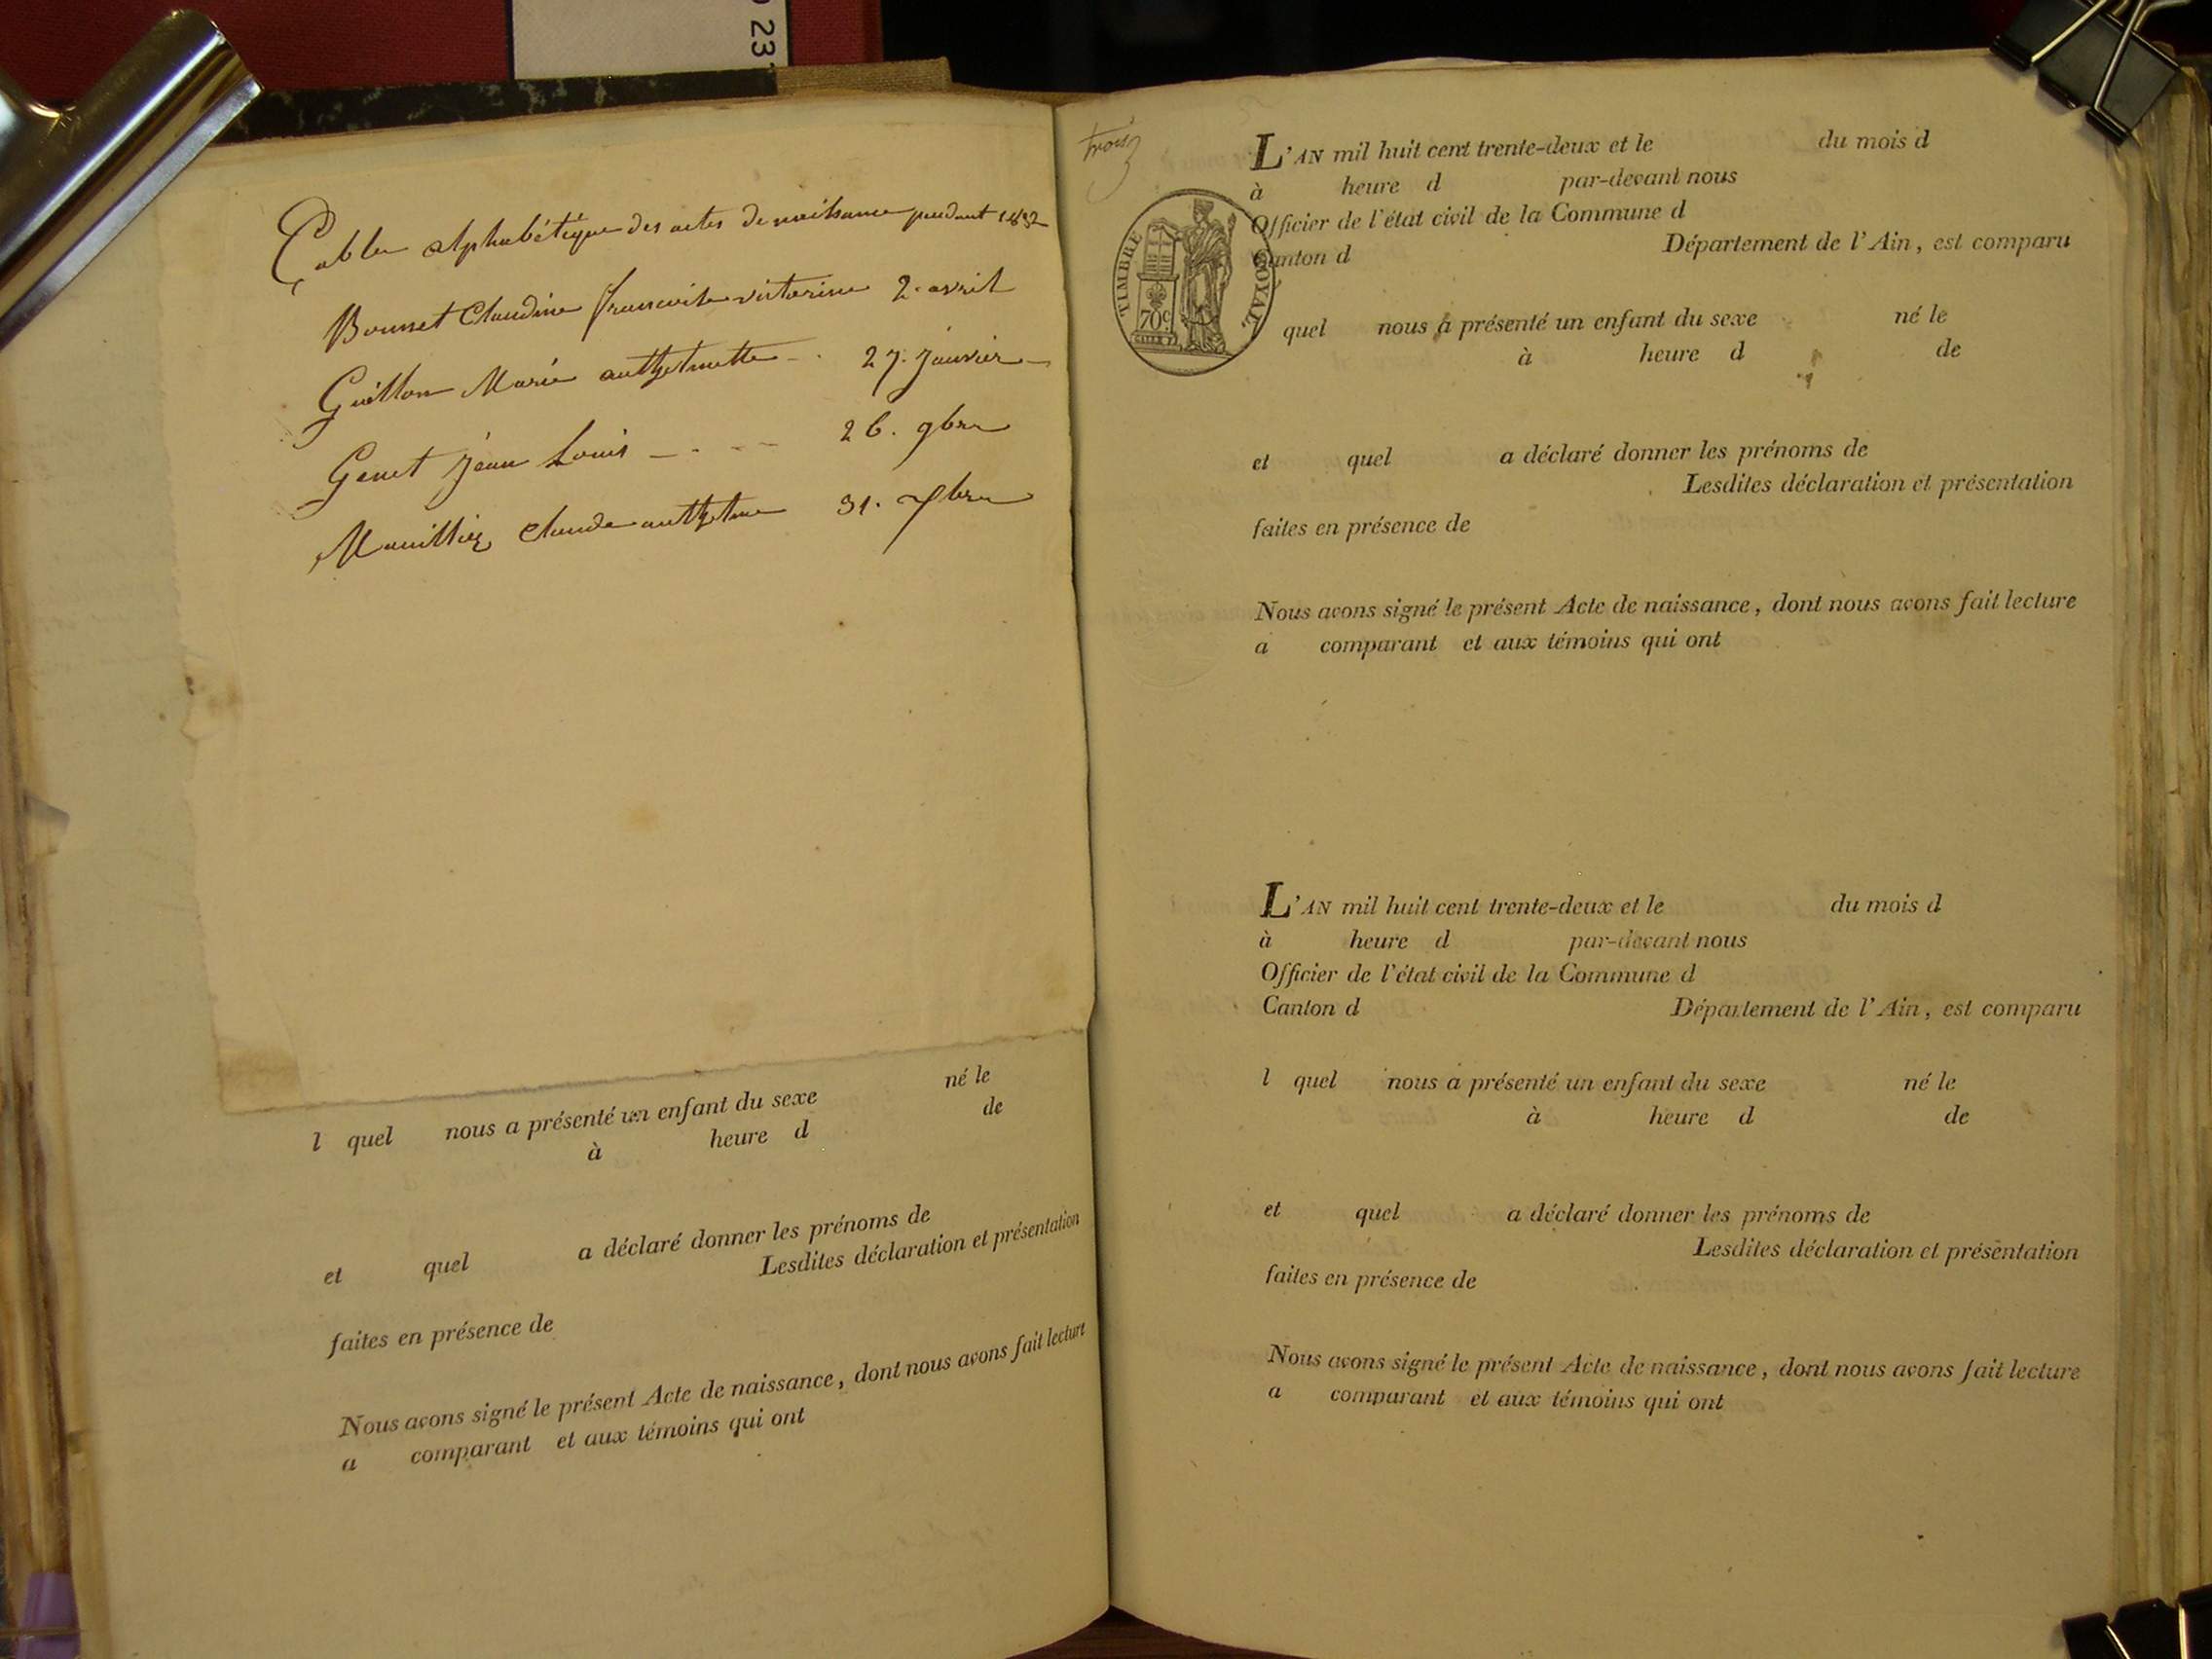 23
Table alphabétique des actes de naissance pendant 1832
Bonnet Claudine francoise victorine 2. avril
Guillon Marie anthelmette - . 27. Janvier -
Genet Jean Louis - . - - 26. 9bre
Manillier Claude anthelme 31. 7bre
l quel nous a présenté un enfant du sexe né le
à heure d de
et quel a déclaré donner les prénoms de
Lesdites déclaration et présentation
faites en présence de
Nous avons signé le présent Acte de naissance, dont nous avons fait lecture
a comparant et aux témoins qui ont
trois
L'AN mil huit cent trente-deux et le du mois d
à heure d par-devant nous
Officier de l'état civil de la Commune d
Canton d Département de l'Ain, est comparu
TIMBRE ROYAL
70c
quel nous a présenté un enfant du sexe né le
à heure d de
et quel a déclaré donner les prénoms de
Lesdites déclaration et présentation
faites en présence de
Nous avons signé le présent Acte de naissance, dont nous avons fait lecture
a comparant et aux témoins qui ont
L'AN mil huit cent trente-deux et le du mois d
à heure d par-devant nous
Officier de l'état civil de la Commune d
Canton d Département de l'Ain, est comparu
l quel nous a présenté un enfant du sexe né le
à heure d de
et quel a déclaré donner les prénoms de
Lesdites déclaration et présentation
faites en présence de
Nous avons signé le présent Acte de naissance, dont nous avons fait lecture
a comparant et aux témoins qui ont